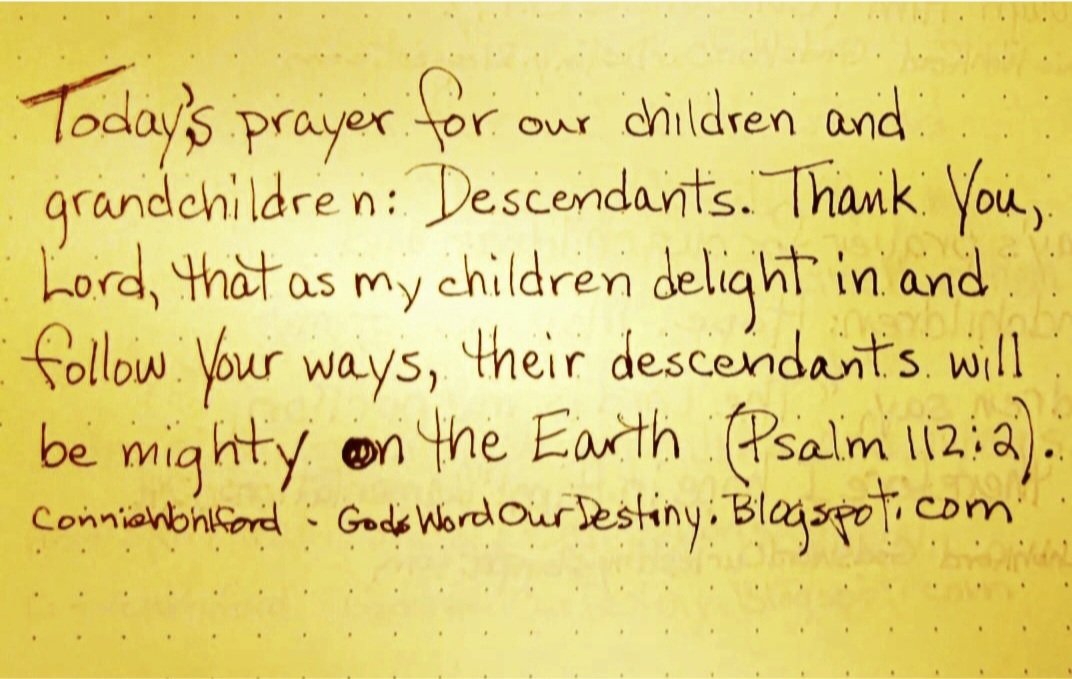 Today's prayer for our children and
grandchildren: Descendants. Thank You,
Lord, that as my children delight in and
follow Your ways, their descendants will
be mighty on the Earth (Psalm 112:2).
ConnieWohlford - GodsWordOurDestiny.Blogspot.com